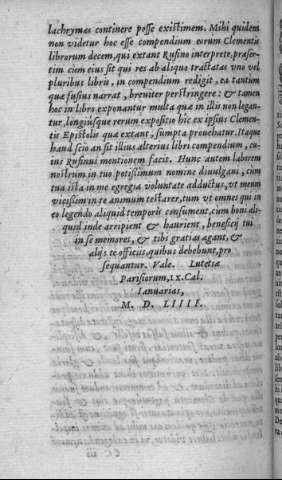 lachrymas continere posse existimem. Mihi quidem
non videtur hoc esse compendium eorum Clementis
librorum decem, qui extant Rufino interprete, præser-
tim cùm eius sit qui res ab aliquo tractatas vno vel
pluribus libris, in compendium redigit, ea tantùm
quæ fusius narrat, breviter perstringere: & tamen
hoc in libro exponantur multa quæ in illis non legan-
tur, longiúsque rerum expositio hîc ex ipsius Clemen-
tis Epistolis quæ extant, sumpta proueḥatur. Itaque
haud scio an sit illius alterius libri compendium, cu-
ius Rufinus mentionem facit. Hunc autem laborem
nostrum in tuo potissimum nomine diuulgaui, cùm
tua ista in me egregia voluntate adductus, vt meum
vicissim in te animum testarer, tum vt omnes qui in
eo legendo aliquid temporis consument, cùm boni ali-
quid inde arripient & haurient, beneficij tui
in se memores, & tibi gratias agant, &
alijs te officiis, quibus debebunt, pro
sequantur. Vale. Lutetiæ
Parisiorum, IX. Cal.
Ianuarias,
M. D. LIIII.